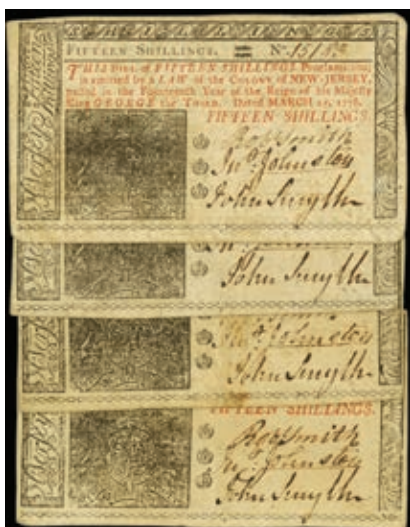 FIFTEEN SHILLINGS. No. 151
THIS BILL of FIFTEEN SHILLINGS Proclamation,
is emitted by a LAW of the COLONY of NEW-JERSEY,
passed in the Fourteenth Year of the Reign of his Majesty
King GEORGE the THIRD. Dated MARCH 25, 1776.
FIFTEEN SHILLINGS.
Robt Smith
Jno. Johnston
John Smyth
John Smyth
Jno. Johnston
John Smyth
FIFTEEN SHILLINGS.
Robt Smith
Jno. Johnston
John Smyth